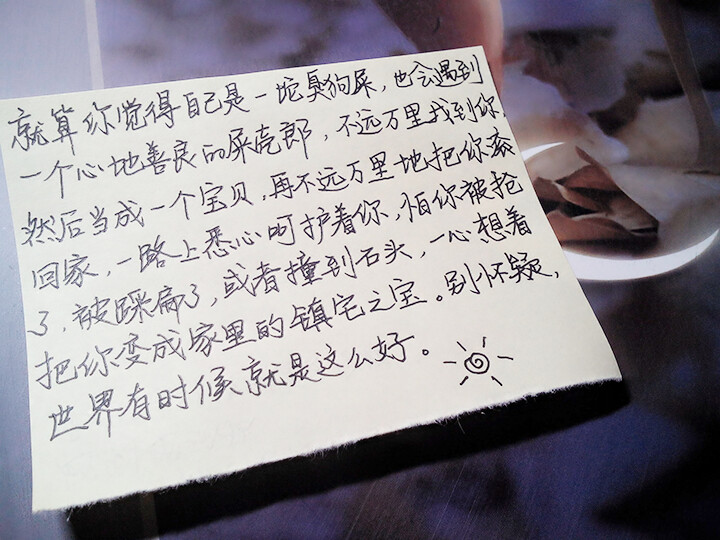 就算你觉得自己是一坨臭狗屎，也会遇到
一个心地善良的屎壳郎，不远万里找到你
然后当成一个宝贝，再不远万里地把你滚
回家，一路上悉心呵护着你，怕你被抢
了，被踩扁了，或者撞到石头，一心想着
把你变成家里的镇宅之宝。别怀疑，
世界有时候就是这么好。